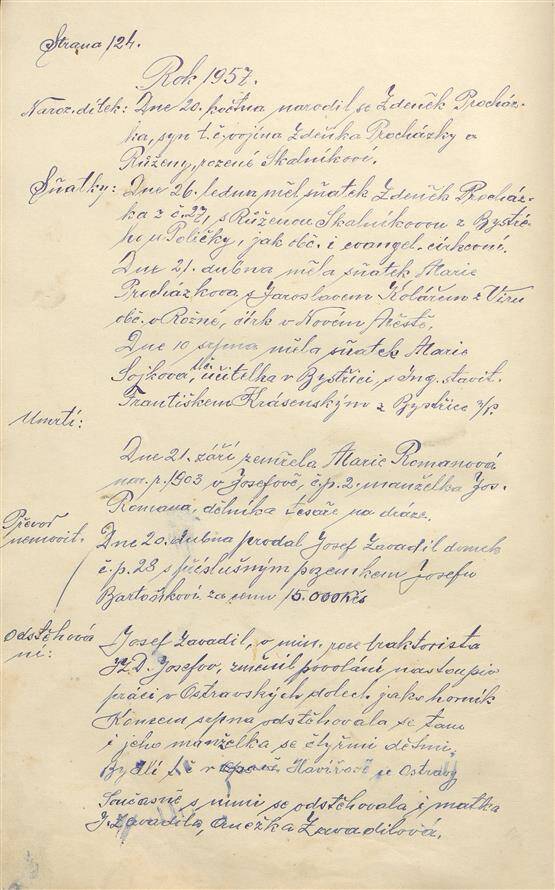 Strana 124.
Rok 1957.
Naroz. dítek: Dne 20. května narodil se Zdeněk Procház-
ka, syn t. č. vojína Zdeňka Procházky a
Růženy, rozené Skalníkové.
Sňatky: Dne 26. ledna měl sňatek Zdeněk Procház-
ka z č. 27, s Růženou Skalníkovou z Bystré-
ho u Poličky, jak obč. i evangel. církevní.
Dne 21. dubna měla sňatek Marie
Procházkova s Jaroslavem Kolářem z Víru
obč. v Rožné, círk v Novém Městě.
Dne 10 srpna měla sňatek Marie
Sojkova, uč. učitelka v Bystřici, s Ing. stavit.
Františkem Krásenským z Bystřice n/P.
Umrtí:
Dne 21. září zemřela Marie Romanová
nar. r. 1903 v Josefově, č.p. 2. manželka Jos.
Romana, dělníka tesaře na dráze.
Převod
nemovit. Dne 20. dubna prodal Josef Zavadil domek
č.p. 28 s příslušným pozemkem Josefu
Bartoňkovi za cenu 15.000 Kčs
Odstěhová
ní: Josef Zavadil, v min. roce traktorista
JZD. Josefov, změnil povolání nastoupiv
práci v Ostravských dolech jako horník
Koncem srpna odstěhovala se tam
i jeho manželka se čtyřmi dětmi,
Bydlí t. č v Havířově u Ostravy
Současně s nimi se odstěhovala i matka
J. Zavadila, Anežka Zavadilová.